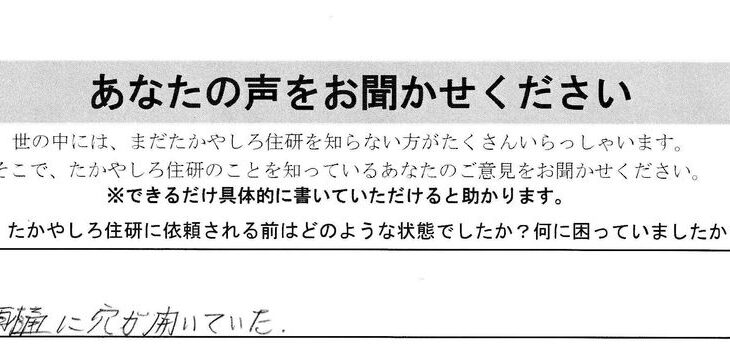 あなたの声をお聞かせください
世の中には、まだたかやしろ住研を知らない方がたくさんいらっしゃいます。
そこで、たかやしろ住研のことを知っているあなたのご意見をお聞かせください。
※できるだけ具体的に書いていただけると助かります。
たかやしろ住研に依頼される前はどのような状態でしたか？何に困っていましたか
雨樋に穴が開いていた.